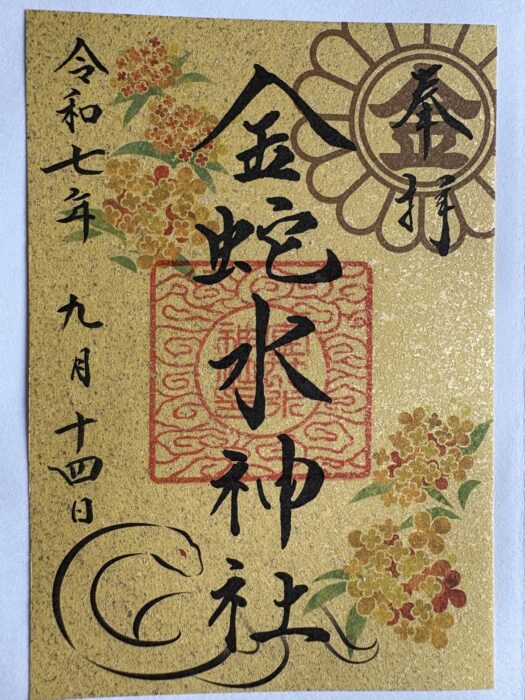 奉拝
金
金蛇水神社
令和七年 九月十四日